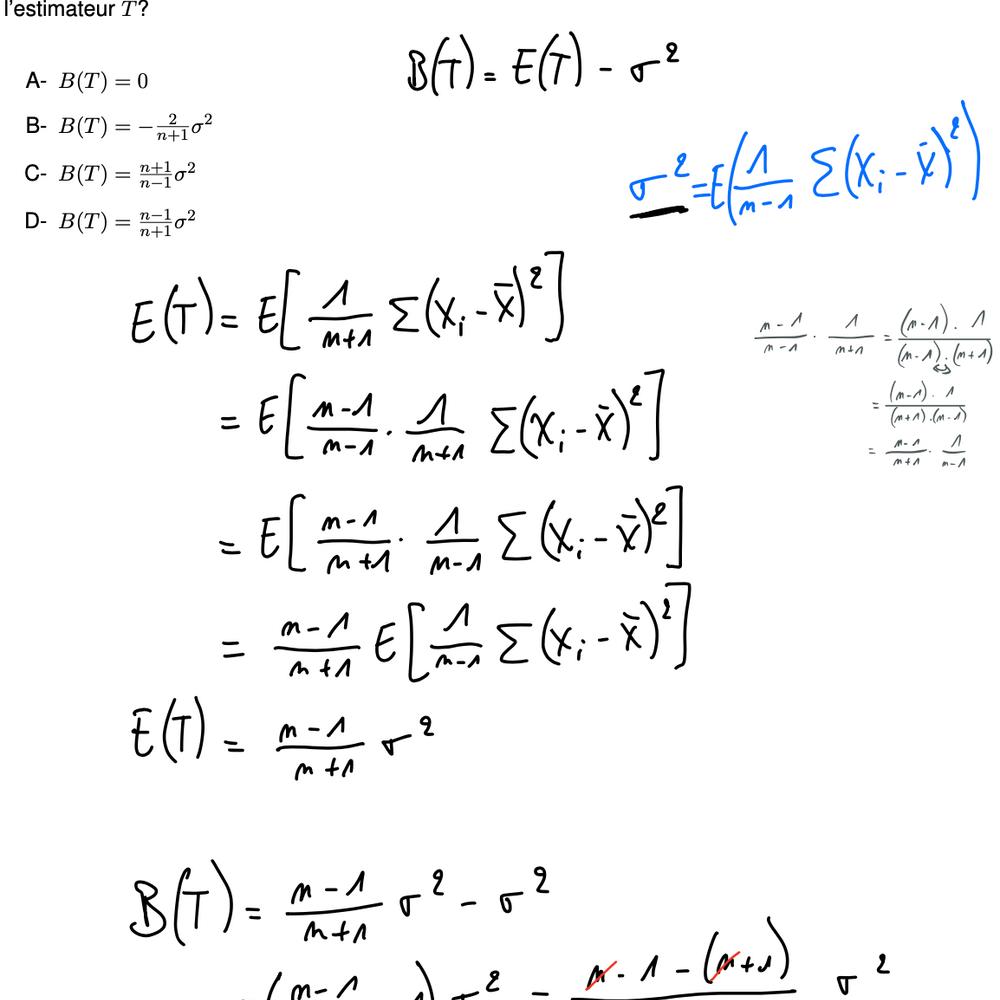 l'estimateur T?
B(T) = E(T) - σ²
A- B(T) = 0
B- B(T) = -2/(n+1) σ²
C- B(T) = (n+1)/(n-1) σ²
D- B(T) = (n-1)/(n+1) σ²
σ² = E(1/(n-1) Σ(Xi - X̄)²)
E(T) = E[1/(n+1) Σ(Xi - X̄)²]
= E[(n-1)/(n-1) · 1/(n+1) Σ(Xi - X̄)²]
= E[(n-1)/(n+1) · 1/(n-1) Σ(Xi - X̄)²]
= (n-1)/(n+1) E[1/(n-1) Σ(Xi - X̄)²]
E(T) = (n-1)/(n+1) σ²
(n-1)/(n-1) · 1/(n+1) = ((n-1) · 1)/((n-1) · (n+1))
= ((n-1) · 1)/((n+1) · (n-1))
= (n-1)/(n+1) · 1/(n-1)
B(T) = (n-1)/(n+1) σ² - σ²
(n-1 ) σ² = n - 1 - (n+1) σ²